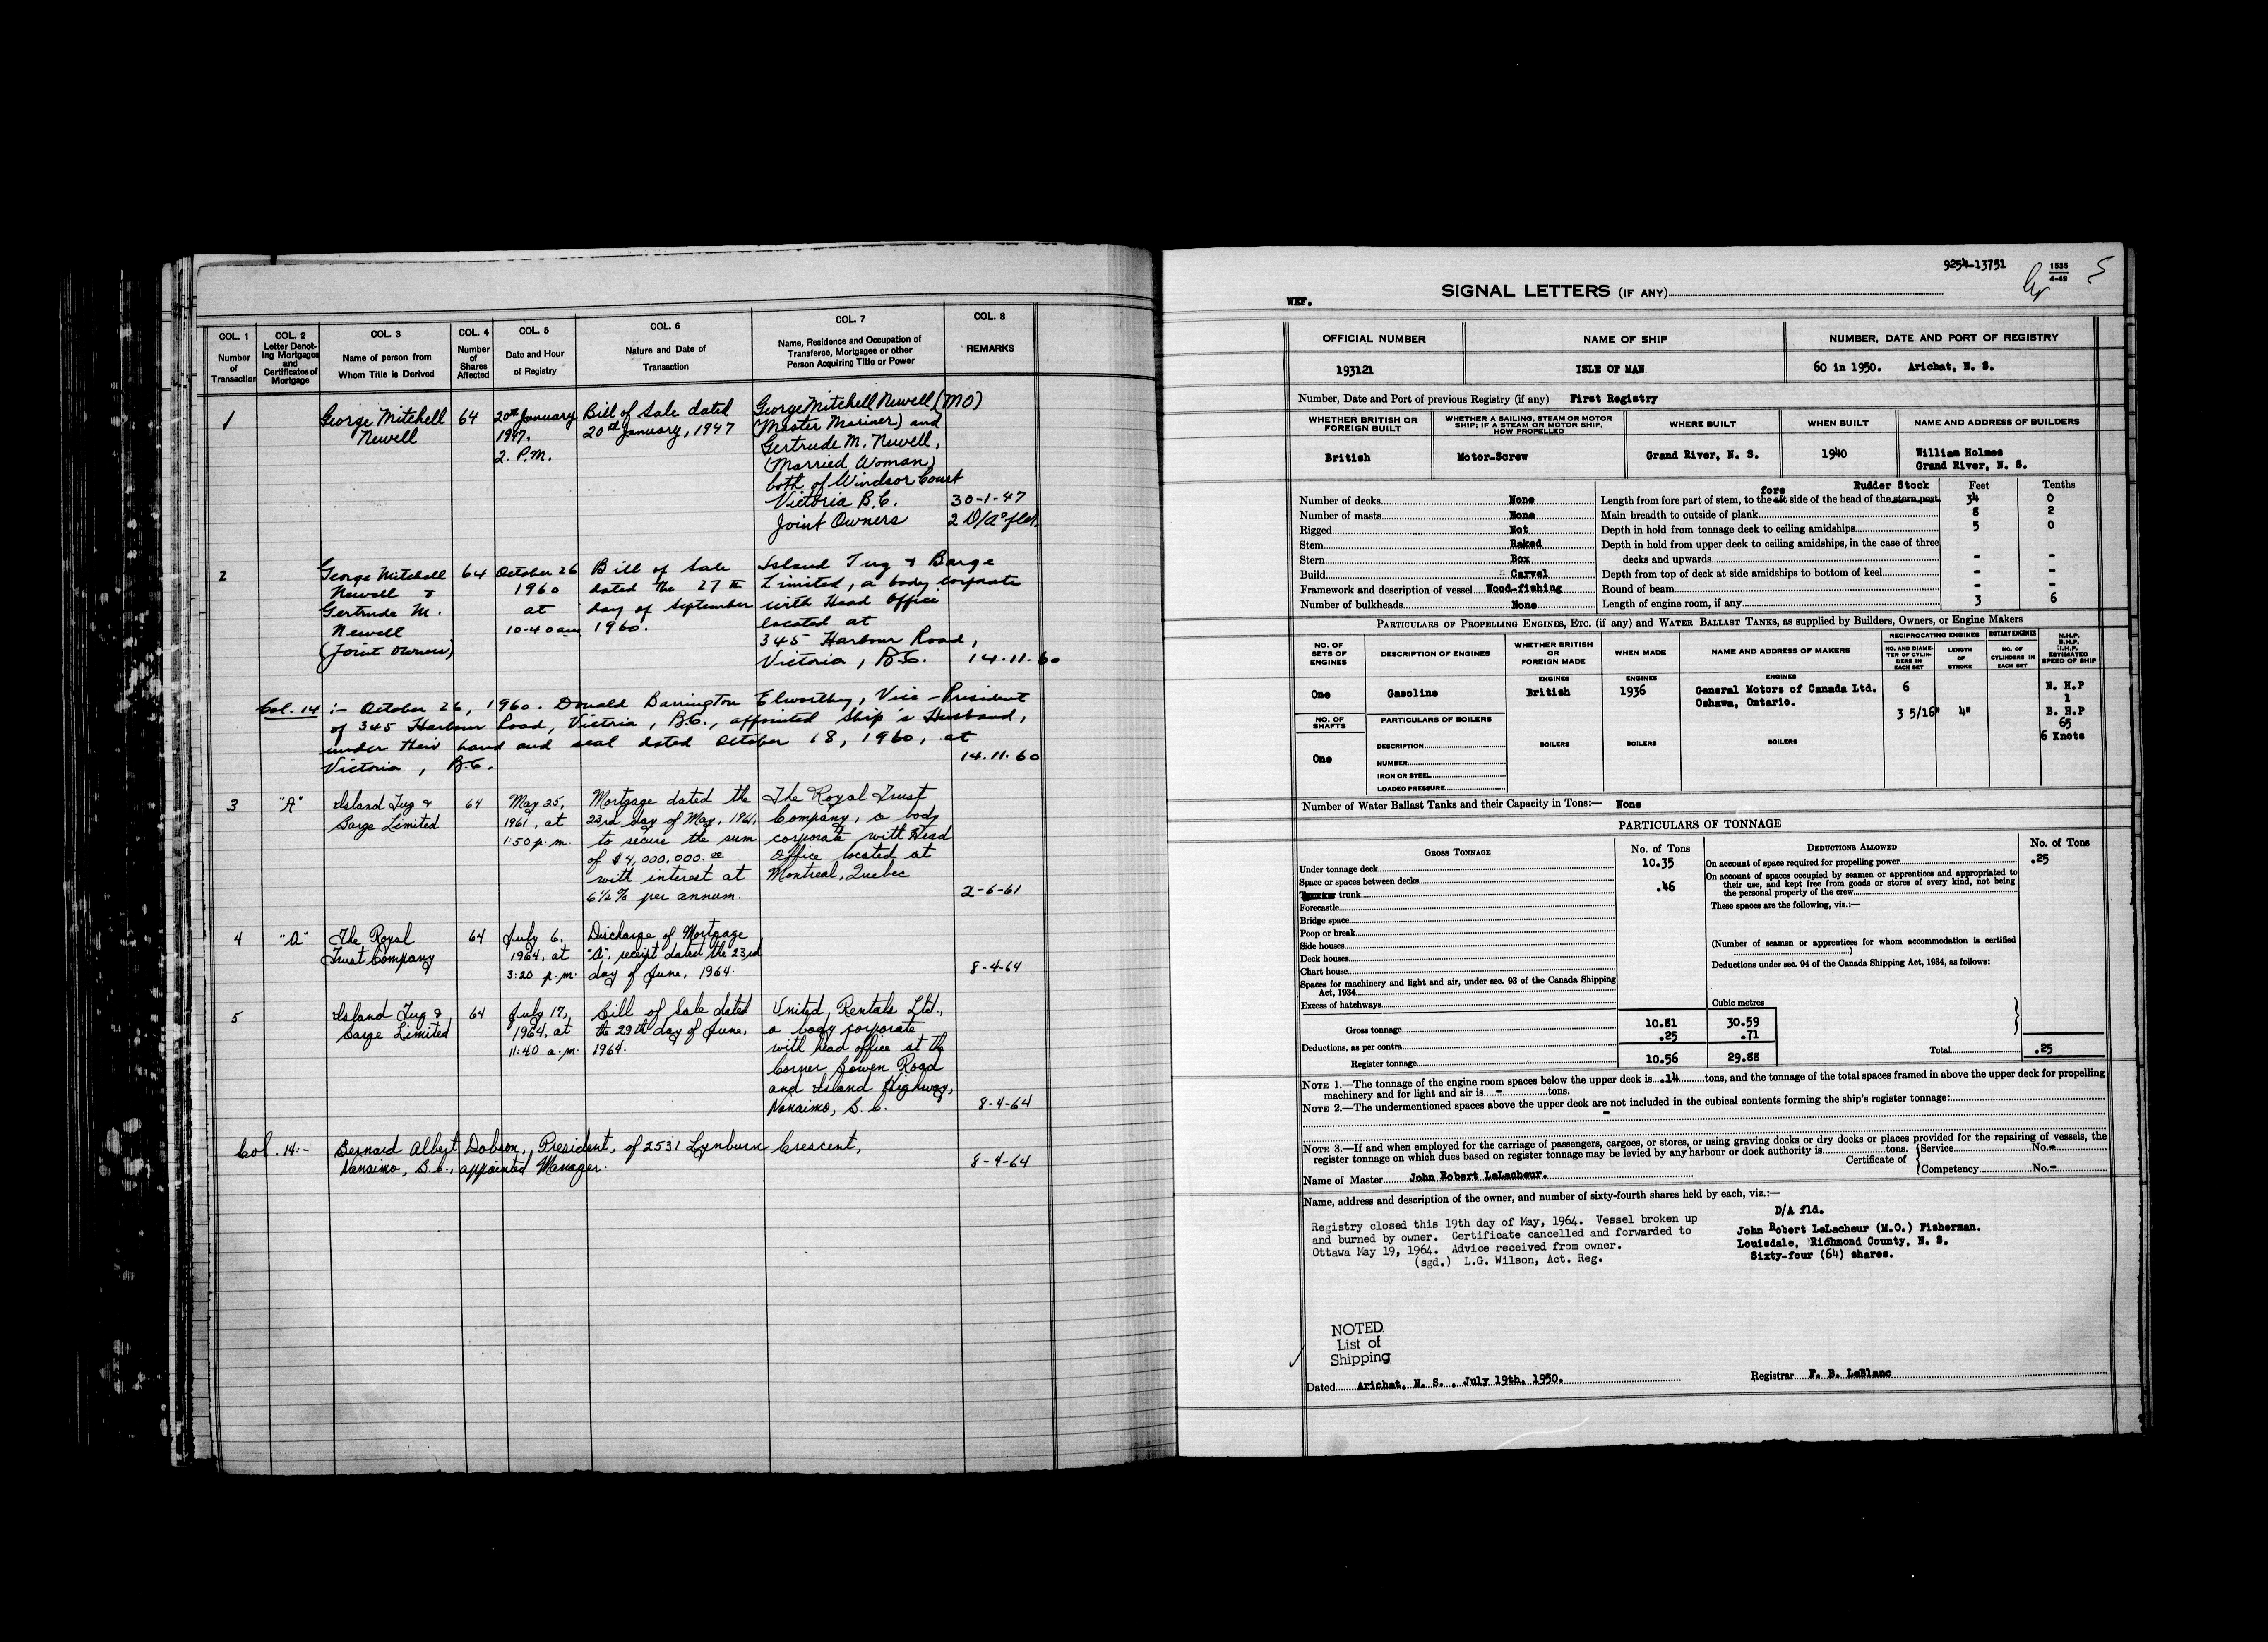 COL. 1 COL. 2 COL. 3 COL. 4 COL. 5 COL. 6 COL. 7 COL. 8
Number of Transaction
Letter Denoting Mortgages and Certificates of Mortgage
Name of person from Whom Title is Derived
Number of Shares Affected
Date and Hour of Registry
Nature and Date of Transaction
Name, Residence and Occupation of Transferee, Mortgagee or other Person Acquiring Title or Power
REMARKS
1 George Mitchell 64 20th January Bill of Sale dated George Mitchell Newell (MO)
Newell 1947. 20th January, 1947 (Master Mariner) and
2. P.M. Gertrude M. Newell,
(Married Woman)
both of Windsor Court
Victoria B.C. 30-1-47
Joint Owners 2 D/As fld.
2 George Mitchell 64 October 26 Bill of Sale Island Tug & Barge
Newell & 1960 dated the 27th Limited, a body corporate
Gertrude M. at day of September with Head Office
Newell 10-40 am 1960. located at
(Joint Owners) 345 Harbour Road,
Victoria, B.C. 14.11.60
Col. 14 :- October 26, 1960. Donald Barrington Elworthy, Vice-President
of 345 Harbour Road, Victoria, B.C., appointed Ship's Husband,
under their hand and seal dated October 18, 1960, at
Victoria, B.C. 14.11.60
3 "A" Island Tug & 64 May 25, Mortgage dated the The Royal Trust
Barge Limited 1961, at 23rd day of May, 1961, Company, a body
1:50 p.m. to secure the sum corporate with Head
of $4,000,000.00 Office located at
with interest at Montreal, Quebec
6½% per annum. 2-6-61
4 "A" The Royal 64 July 6, Discharge of Mortgage
Trust Company 1964, at "A", receipt dated the 23rd
3:20 p.m. day of June, 1964. 8-4-64
5 Island Tug & 64 July 17, Bill of Sale dated United Rentals Ltd.,
Barge Limited 1964, at the 29th day of June, a body corporate
11:40 a.m. 1964. with head office at the
Corner Bowen Road
and Island Highway,
Nanaimo, B.C. 8-4-64
Col. 14:- Bernard Albert Dobson, President, of 2531 Lynburn Crescent,
Nanaimo, B.C., appointed Manager. 8-4-64
9254-13751
1535
4-49
5
SIGNAL LETTERS (IF ANY)
WEF.
OFFICIAL NUMBER NAME OF SHIP NUMBER, DATE AND PORT OF REGISTRY
193121 ISLE OF MAN 60 in 1950. Arichat, N. S.
Number, Date and Port of previous Registry (if any) First Registry
WHETHER BRITISH OR FOREIGN BUILT
WHETHER A SAILING, STEAM OR MOTOR SHIP; IF A STEAM OR MOTOR SHIP, HOW PROPELLED
WHERE BUILT WHEN BUILT NAME AND ADDRESS OF BUILDERS
British Motor-Screw Grand River, N. S. 1940 William Holmes
Grand River, N. S.
fore Rudder Stock Feet Tenths
Number of decks None Length from fore part of stem, to the aft side of the head of the stern post 34 0
Number of masts None Main breadth to outside of plank 8 2
Rigged Not Depth in hold from tonnage deck to ceiling amidships 5 0
Stem Raked Depth in hold from upper deck to ceiling amidships, in the case of three
Stern Box decks and upwards - -
Build Carvel Depth from top of deck at side amidships to bottom of keel - -
Framework and description of vessel Wood-fishing Round of beam - -
Number of bulkheads None Length of engine room, if any 3 6
PARTICULARS OF PROPELLING ENGINES, ETC. (if any) and WATER BALLAST TANKS, as supplied by Builders, Owners, or Engine Makers
NO. OF SETS OF ENGINES
DESCRIPTION OF ENGINES
WHETHER BRITISH OR FOREIGN MADE
WHEN MADE
NAME AND ADDRESS OF MAKERS
RECIPROCATING ENGINES ROTARY ENGINES
NO. AND DIAMETER OF CYLINDERS IN EACH SET
LENGTH OF STROKE
NO. OF CYLINDERS IN EACH SET
N.H.P. B.H.P. I.H.P. ESTIMATED SPEED OF SHIP
ENGINES ENGINES ENGINES
One Gasoline British 1936 General Motors of Canada Ltd. 6 N. H.P
Oshawa, Ontario. 1
3 5/16" 4" B. H.P
65
6 Knots
NO. OF SHAFTS PARTICULARS OF BOILERS
One
DESCRIPTION BOILERS BOILERS BOILERS
NUMBER
IRON OR STEEL
LOADED PRESSURE
Number of Water Ballast Tanks and their Capacity in Tons:— None
PARTICULARS OF TONNAGE
GROSS TONNAGE No. of Tons DEDUCTIONS ALLOWED No. of Tons
Under tonnage deck 10.35 On account of space required for propelling power .25
Space or spaces between decks On account of spaces occupied by seamen or apprentices and appropriated to
trunk .46 their use, and kept free from goods or stores of every kind, not being
the personal property of the crew
Forecastle These spaces are the following, viz.:—
Bridge space
Poop or break
Side houses (Number of seamen or apprentices for whom accommodation is certified
Deck houses )
Chart house Deductions under sec. 94 of the Canada Shipping Act, 1934, as follows:
Spaces for machinery and light and air, under sec. 93 of the Canada Shipping
Act, 1934
Excess of hatchways Cubic metres
Gross tonnage 10.81 30.59
Deductions, as per contra .25 .71
Register tonnage 10.56 29.88 Total .25
NOTE 1.—The tonnage of the engine room spaces below the upper deck is .14 tons, and the tonnage of the total spaces framed in above the upper deck for propelling
machinery and for light and air is - tons.
NOTE 2.—The undermentioned spaces above the upper deck are not included in the cubical contents forming the ship's register tonnage:
-
NOTE 3.—If and when employed for the carriage of passengers, cargoes, or stores, or using graving docks or dry docks or places provided for the repairing of vessels, the
register tonnage on which dues based on register tonnage may be levied by any harbour or dock authority is tons.
Certificate of Service No.-
Competency No.-
Name of Master John Robert LeLacheur.
Name, address and description of the owner, and number of sixty-fourth shares held by each, viz.:—
D/A fld.
John Robert LeLacheur (M.O.) Fisherman.
Louisdale, Richmond County, N. S.
Sixty-four (64) shares.
Registry closed this 19th day of May, 1964. Vessel broken up
and burned by owner. Certificate cancelled and forwarded to
Ottawa May 19, 1964. Advice received from owner.
(sgd.) L.G. Wilson, Act. Reg.
NOTED
List of
Shipping
Dated Arichat, N. S., July 19th, 1950. Registrar F. B. LeBlanc